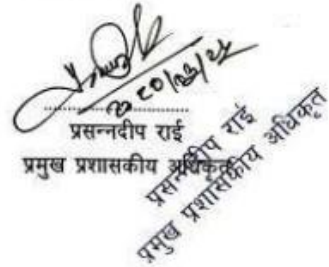 प्रसन्नदीप राई
प्रमुख प्रशासकीय अधिकृत
प्रसन्नदीप राई
प्रमुख प्रशासकीय अधिकृत